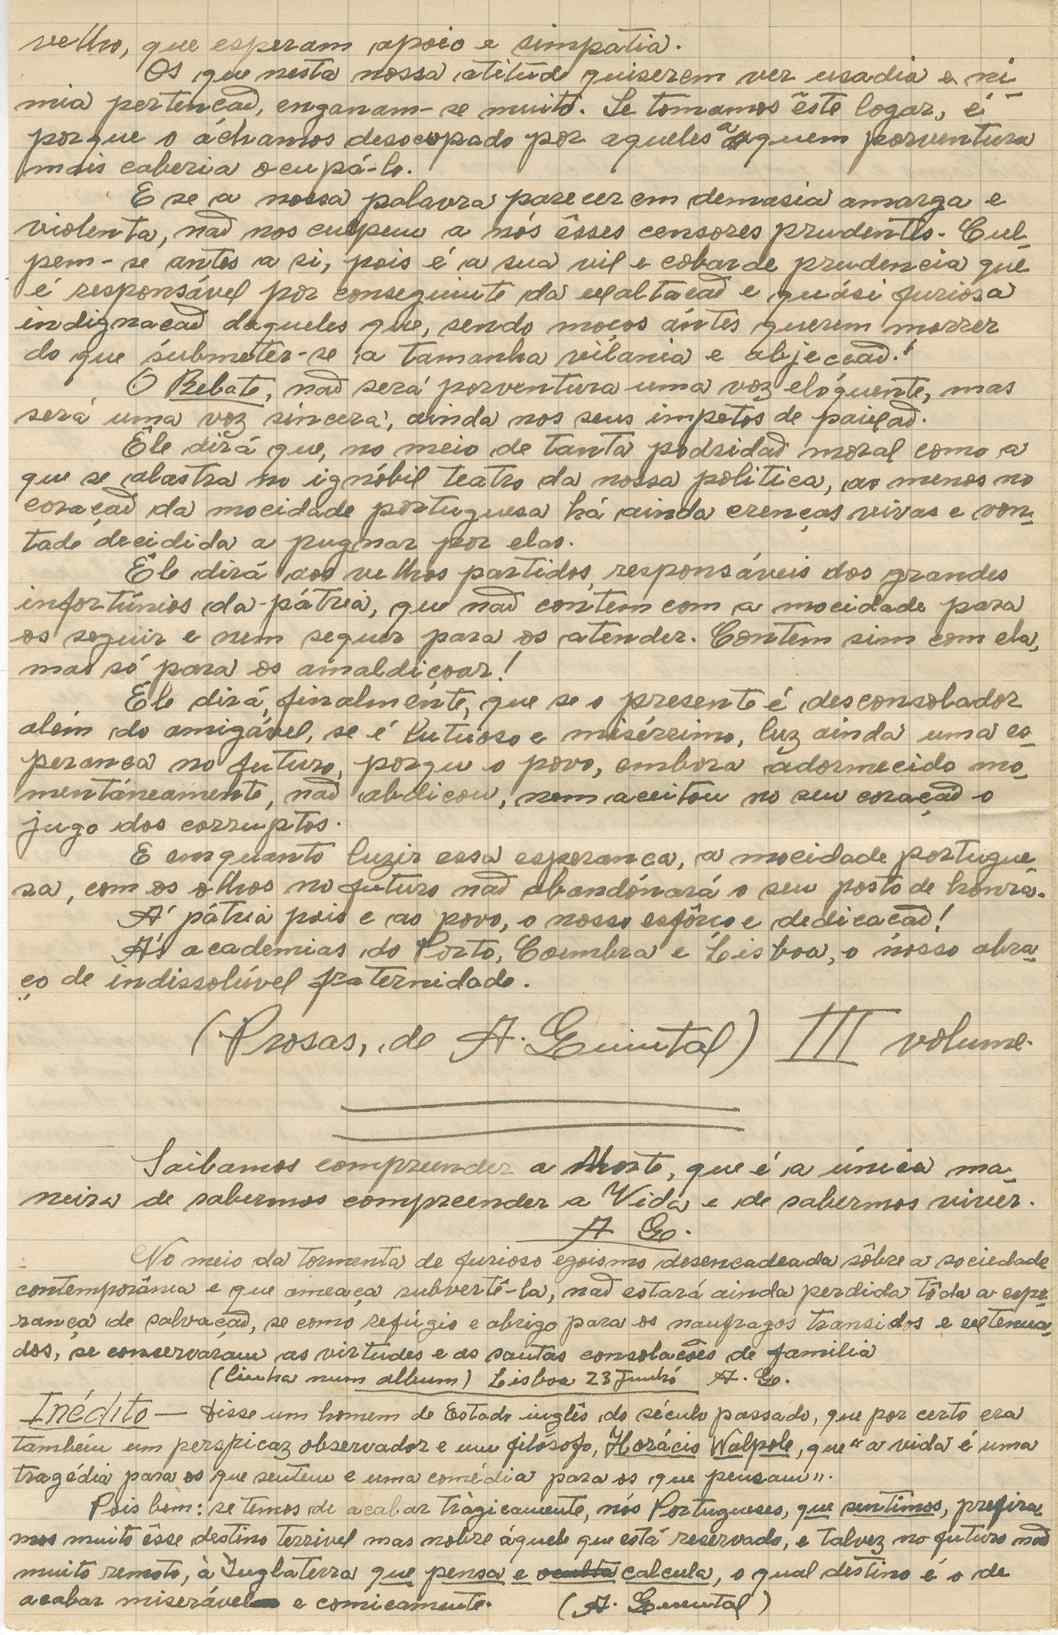 velho, que esperam apoio e simpatia.
Os que nesta nossa atitude quiserem ver usadia e ni-
mia pertençaõ, enganam-se muito. Se tomamos êste logar, é
porque o áchamos desocupado por aqueles a quem porventura
mais caberia ocupá-lo.
E se a nossa palavra parecer em demasia amarga e
violenta, naõ nos culpem a nós êsses censores prudentes. Cul-
pem-se antes a si, pois é a sua vil e cobarde prudencia que
é responsável por conseguinte da exaltacaõ e quási furiosa
indignacaõ daqueles que, sendo moços ántes querem morrer
do que submeter-se a tamanha vilania e abjeccaõ!
O Rebate, naõ será porventura uma voz elóquente, mas
será uma voz sincera, ainda nos seus impetos de paixaõ.
Êle dirá que, no meio de tanta podridaõ moral como a
que se alastra no ignóbil teatro da nossa politica, ao menos no
coraçaõ da mocidade portuguesa há ainda crenças vivas e von-
tade decidida a pugnar por elas.
Êle dirá aos velhos partidos, responsáveis dos grandes
infortúnios da pátria, que naõ contem com a mocidade para
os seguir e nem sequer para os atender. Contem sim com ela,
mas só para os amaldiçoar!
Êle dirá, finalmente, que se o presente é desconsolador
além do amigável, se é lutuoso e misérrimo, luz ainda uma es-
perança no futuro, porqu o povo, embora adormecido mo-
mentáneamente, naõ abdicou, nem aceitou no seu coraçaõ o
jugo dos corruptos.
E emquanto luzir essa esperanca, a mocidade portugue-
sa, com os olhos no futuro naõ abandónará o seu posto de honra.
Á pátria pois e ao povo, o nosso esfôrço e dedicacaõ!
Ás academias do Porto, Coimbra e Lisboa, o nosso abra-
ço de indissolúvel fraternidade.
(Prosas, de A. Quental) III volume.
Saibamos compreender a Morte, que é a única ma-
neira de sabermos compreender a Vida e de sabermos viver.
A Q.
No meio da tormenta de furioso egoismo desencadeada sôbre a sociedade
contemporânea e que ameaça subvertê-la, naõ estará ainda perdida tôda a espe-
rança de salvaçaõ, se como refúgio e abrigo para os naufragos transidos e extenua-
dos, se conservaram as virtudes e as santas consolacões de familia
(linha num album) Lisboa 23 Junho A. Q.
Inédito — Disse um homem de Estado inglês do século passado, que por certo era
também um perspicaz observador e um filósofo, Horácio Walpole, que "a vida é uma
tragédia para os que sentem e uma comédia para os que pensam".
Pois bem: se temos de acabar tràgicamente, nós Portugueses, que sentimos, prefira-
mos muito êsse destino terrivel mas nobre áquele que está reservado, e talvez no futuro naõ
muito remoto, à Inglaterra que pensa e calcula, o qual destino é o de
acabar miserável e comicamente. (A. Quental)